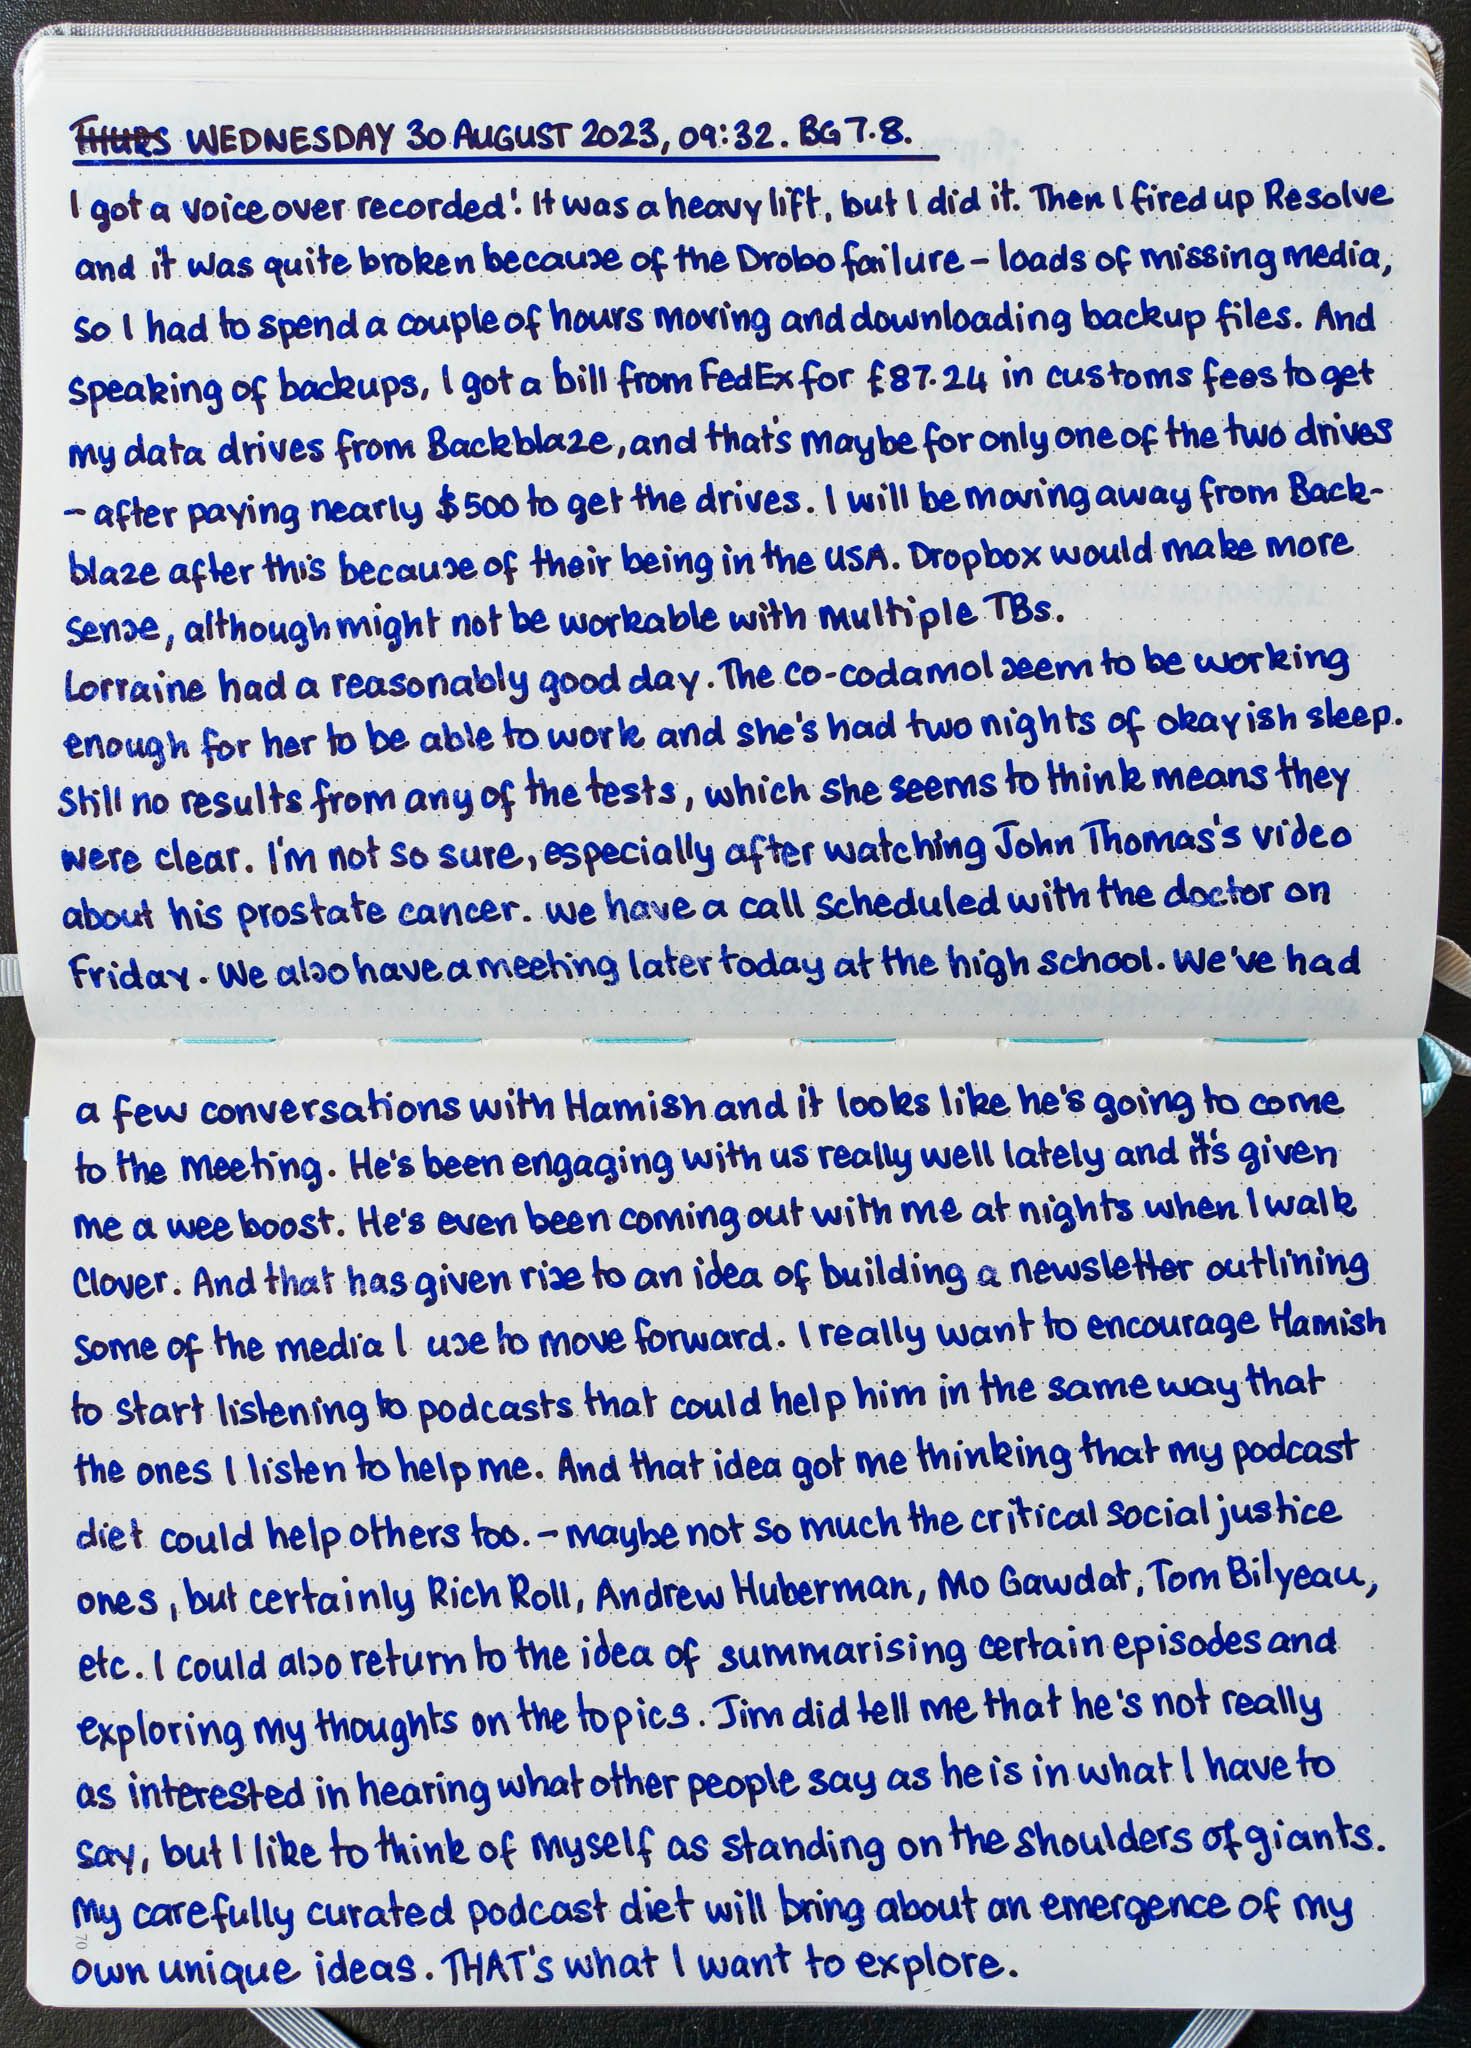 THURS WEDNESDAY 30 AUGUST 2023, 09:32. BG 7.8.
I got a voice over recorded! It was a heavy lift, but I did it. Then I fired up Resolve
and it was quite broken because of the Drobo failure – loads of missing media,
so I had to spend a couple of hours moving and downloading backup files. And
speaking of backups, I got a bill from FedEx for £87.24 in customs fees to get
my data drives from Backblaze, and that's maybe for only one of the two drives
– after paying nearly $500 to get the drives. I will be moving away from Back-
blaze after this because of their being in the USA. Dropbox would make more
sense, although might not be workable with multiple TBs.
Lorraine had a reasonably good day. The co-codamol seem to be working
enough for her to be able to work and she's had two nights of okayish sleep.
Still no results from any of the tests, which she seems to think means they
were clear. I'm not so sure, especially after watching John Thomas's video
about his prostate cancer. We have a call scheduled with the doctor on
Friday. We also have a meeting later today at the high school. We've had
a few conversations with Hamish and it looks like he's going to come
to the meeting. He's been engaging with us really well lately and it's given
me a wee boost. He's even been coming out with me at nights when I walk
Clover. And that has given rise to an idea of building a newsletter outlining
some of the media I use to move forward. I really want to encourage Hamish
to start listening to podcasts that could help him in the same way that
the ones I listen to help me. And that idea got me thinking that my podcast
diet could help others too. – maybe not so much the critical social justice
ones, but certainly Rich Roll, Andrew Huberman, Mo Gawdat, Tom Bilyeau,
etc. I could also return to the idea of summarising certain episodes and
exploring my thoughts on the topics. Jim did tell me that he's not really
as interested in hearing what other people say as he is in what I have to
say, but I like to think of myself as standing on the shoulders of giants.
My carefully curated podcast diet will bring about an emergence of my
own unique ideas. THAT's what I want to explore.
70